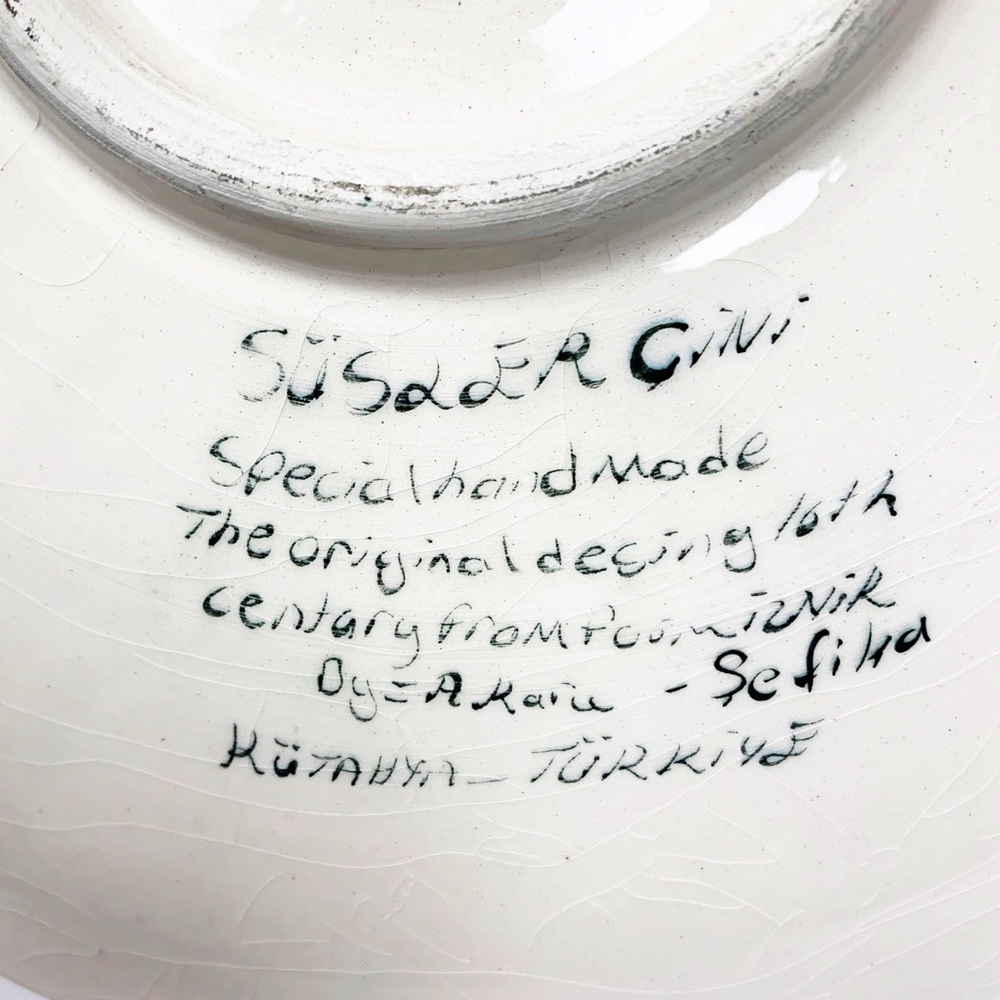 SÜSLER ÇİNİ
Special hand Made
The original desing 16th
Century from İZNİK
By = A Karu - Şefika
KÜTAHYA - TÜRKİYE